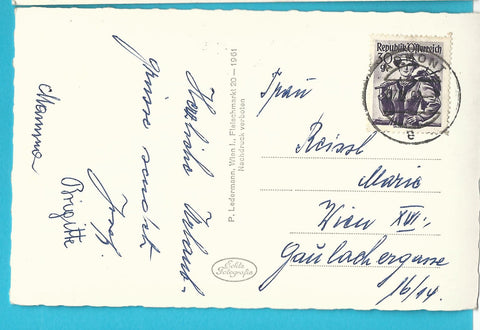 Herzliche Urlaub-
grüsse sendet
Josef
Mamma
Brigitte
P. Ledermann, Wien I., Fleischmarkt 20 — 1961
Nachdruck verboten
Echte
Fotografie
Republik Österreich
30
Frau
Reissl
Marie
Wien XVI.,
Gaulachergasse
16/14.